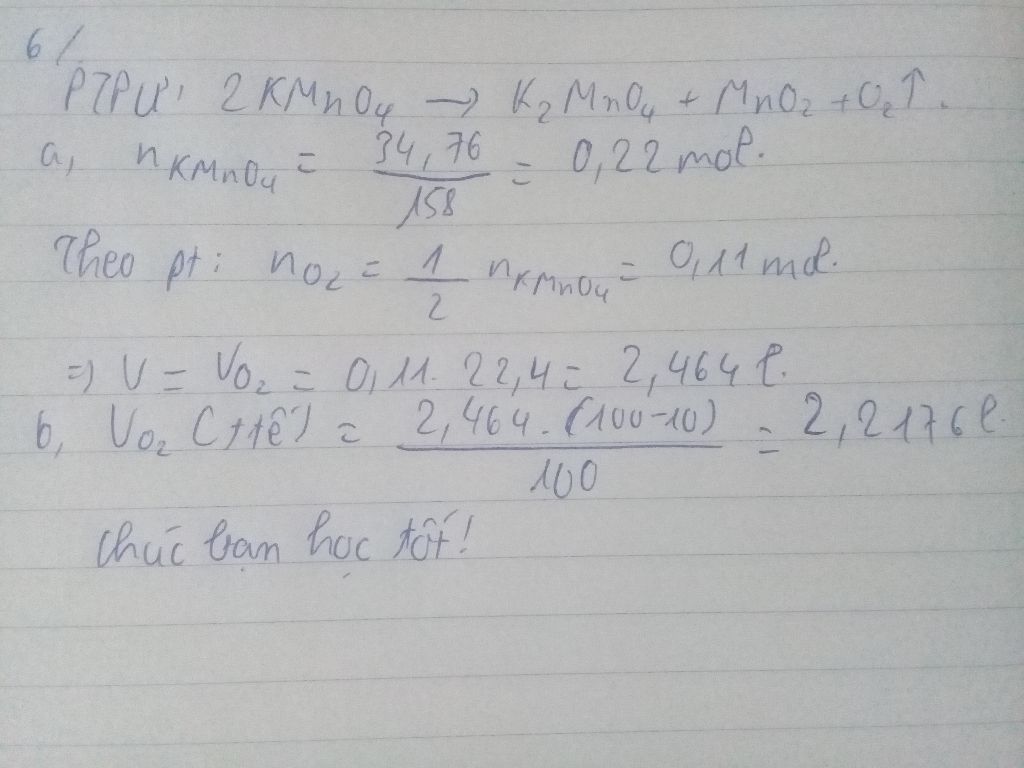 6/
PTPƯ: 2KMnO₄ → K₂MnO₄ + MnO₂ + O₂↑.
a, nKMnO₄ = 34,76/158 = 0,22 mol.
Theo pt: nO₂ = 1/2 nKMnO₄ = 0,11 mol.
=) V = VO₂ = 0,11. 22,4 = 2,464 l.
b, VO₂ (ttế) = 2,464.(100-10)/100 = 2,2176 l.
Chúc bạn học tốt!